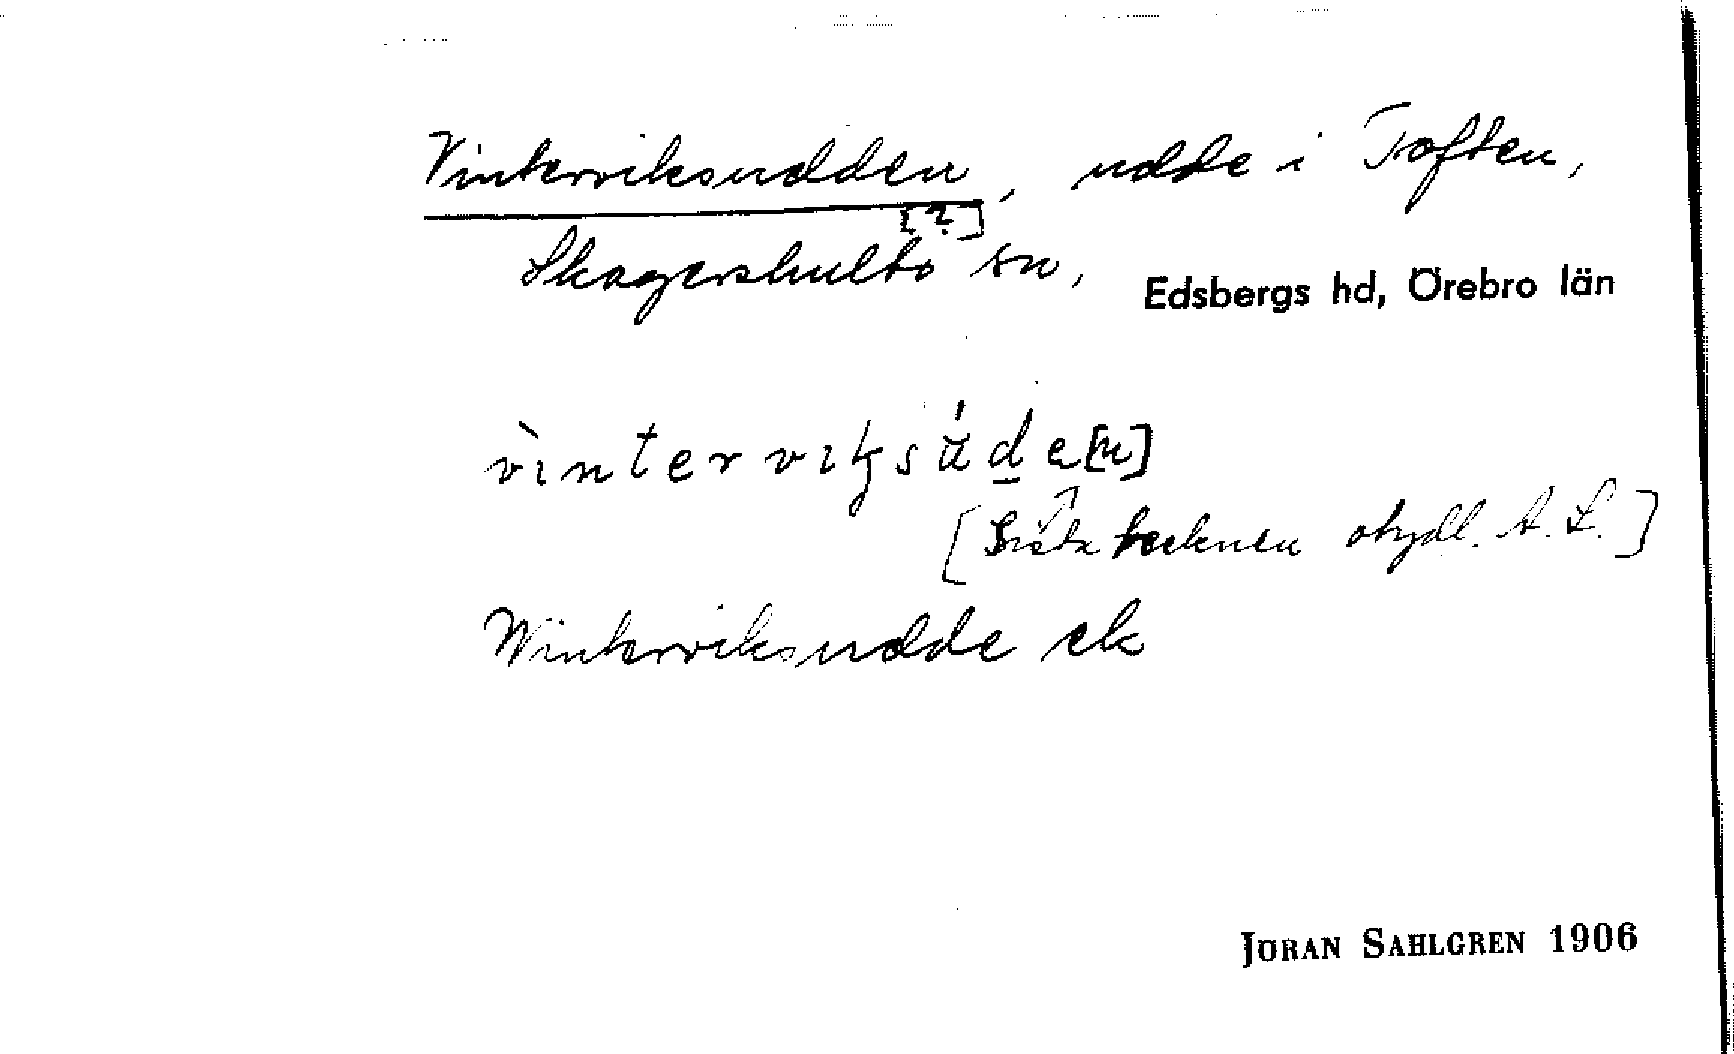 Vinterviksudden, udde i Toften,
[?]
Skagershults sn, Edsbergs hd, Örebro län
vìnterviksúde[n]
[Sista tecknen otydl. A. L.]
Winterviksudde ek
JÖRAN SAHLGREN 1906